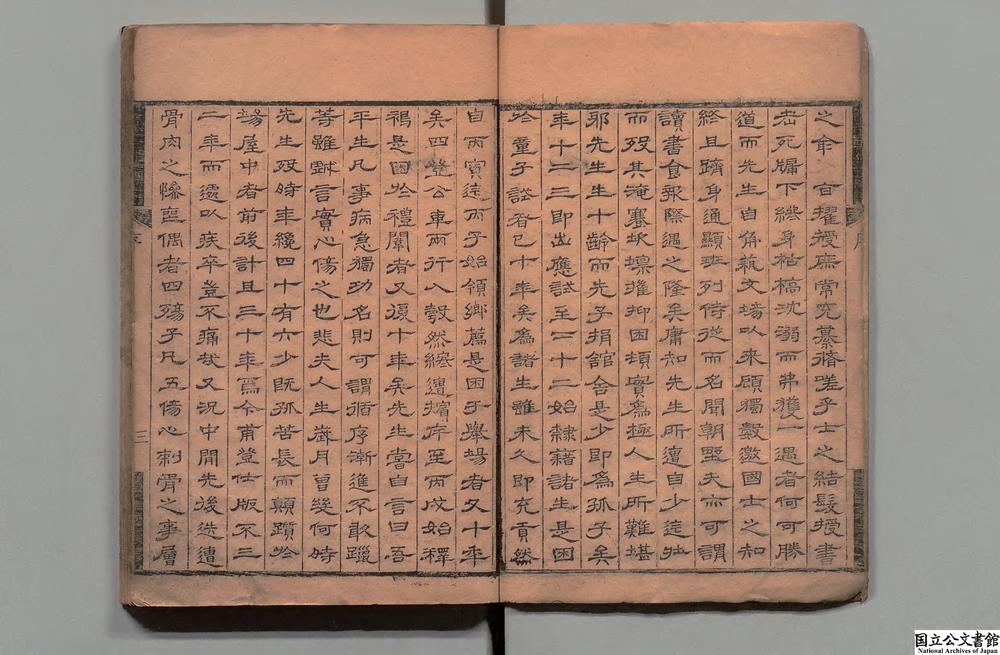 之命 首擢授庶常究纂脩嗟乎士之結髮授書
老死牖下纔身枯槁沈溺而弗獲一遇者何可勝
道而先生自角藝文場以來顧獨數邀國士之知
終且躋身通顯班列侍從而名聞朝野夫亦可謂
讀書食報際遇之隆矣庸知先生所遭自少迄壯
而歿其淹蹇坎壈摧抑困頓實爲極人生所難堪
耶先生生十齡而先子捐館舍是少即爲孤子矣
年十二三即出應試至二十二始隸籍諸生是困
於童子試者已十年矣爲諸生雖未久即充貢然
自丙寅迄丙子始領鄉薦是困于舉場者又十年
矣四登公車兩行入彀然總遭擯斥至丙戌始釋
褐是困於禮闈者又復十年矣先生嘗自言曰吾
平生凡事病急獨功名則可謂循序漸進不敢躐
等雖戲言實心傷之也悲夫人生歲月曾幾何時
先生歿時年纔四十有六少既孤苦長而顛躓於
場屋中者前後計且三十年焉今甫登仕版不三
二年而遽以疾卒豈不痛哉又況中閒先後迭遭
骨肉之慘喪偶者四殤子凡五傷心刺骨之事層
序
三
国立公文書館
National Archives of Japan